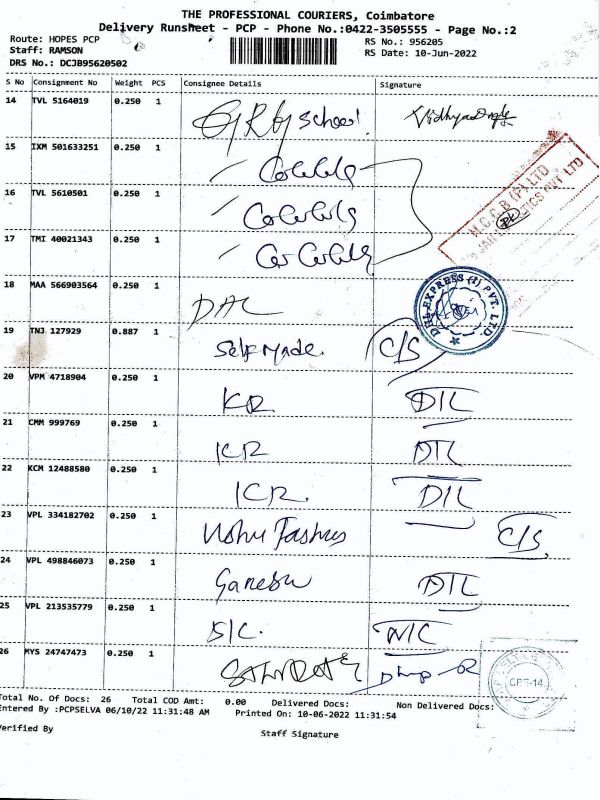 THE PROFESSIONAL COURIERS, Coimbatore
Delivery Runsheet - PCP - Phone No.:0422-3505555 - Page No.:2
Route: HOPES PCP
RS No.: 956205
Staff: RAMSON
RS Date: 10-Jun-2022
DRS No.: DCJB95620502
S No Consignment No Weight PCS Consignee Details Signature
14 TVL 5164019 0.250 1 GRG School
15 IXM 501633251 0.250 1
16 TVL 5610501 0.250 1
17 TMI 40021343 0.250 1
18 MAA 566903564 0.250 1
DHL EXPRESS (I) PVT. LTD
19 TNJ 127929 0.887 1 Self Made. C/S
20 VPM 4718904 0.250 1 KR DIL
21 CMM 999769 0.250 1 ICR DIL
22 KCM 12488580 0.250 1 ICR. DIL
23 VPL 334182702 0.250 1 C/S
24 VPL 498846073 0.250 1 Ganesh DIL
25 VPL 213535779 0.250 1 S/C. N/C
26 MYS 24747473 0.250 1
Total No. Of Docs: 26 Total COD Amt: 0.00 Delivered Docs: Non Delivered Docs:
Entered By :PCPSELVA 06/10/22 11:31:48 AM Printed On: 10-06-2022 11:31:54
Verified By
Staff Signature